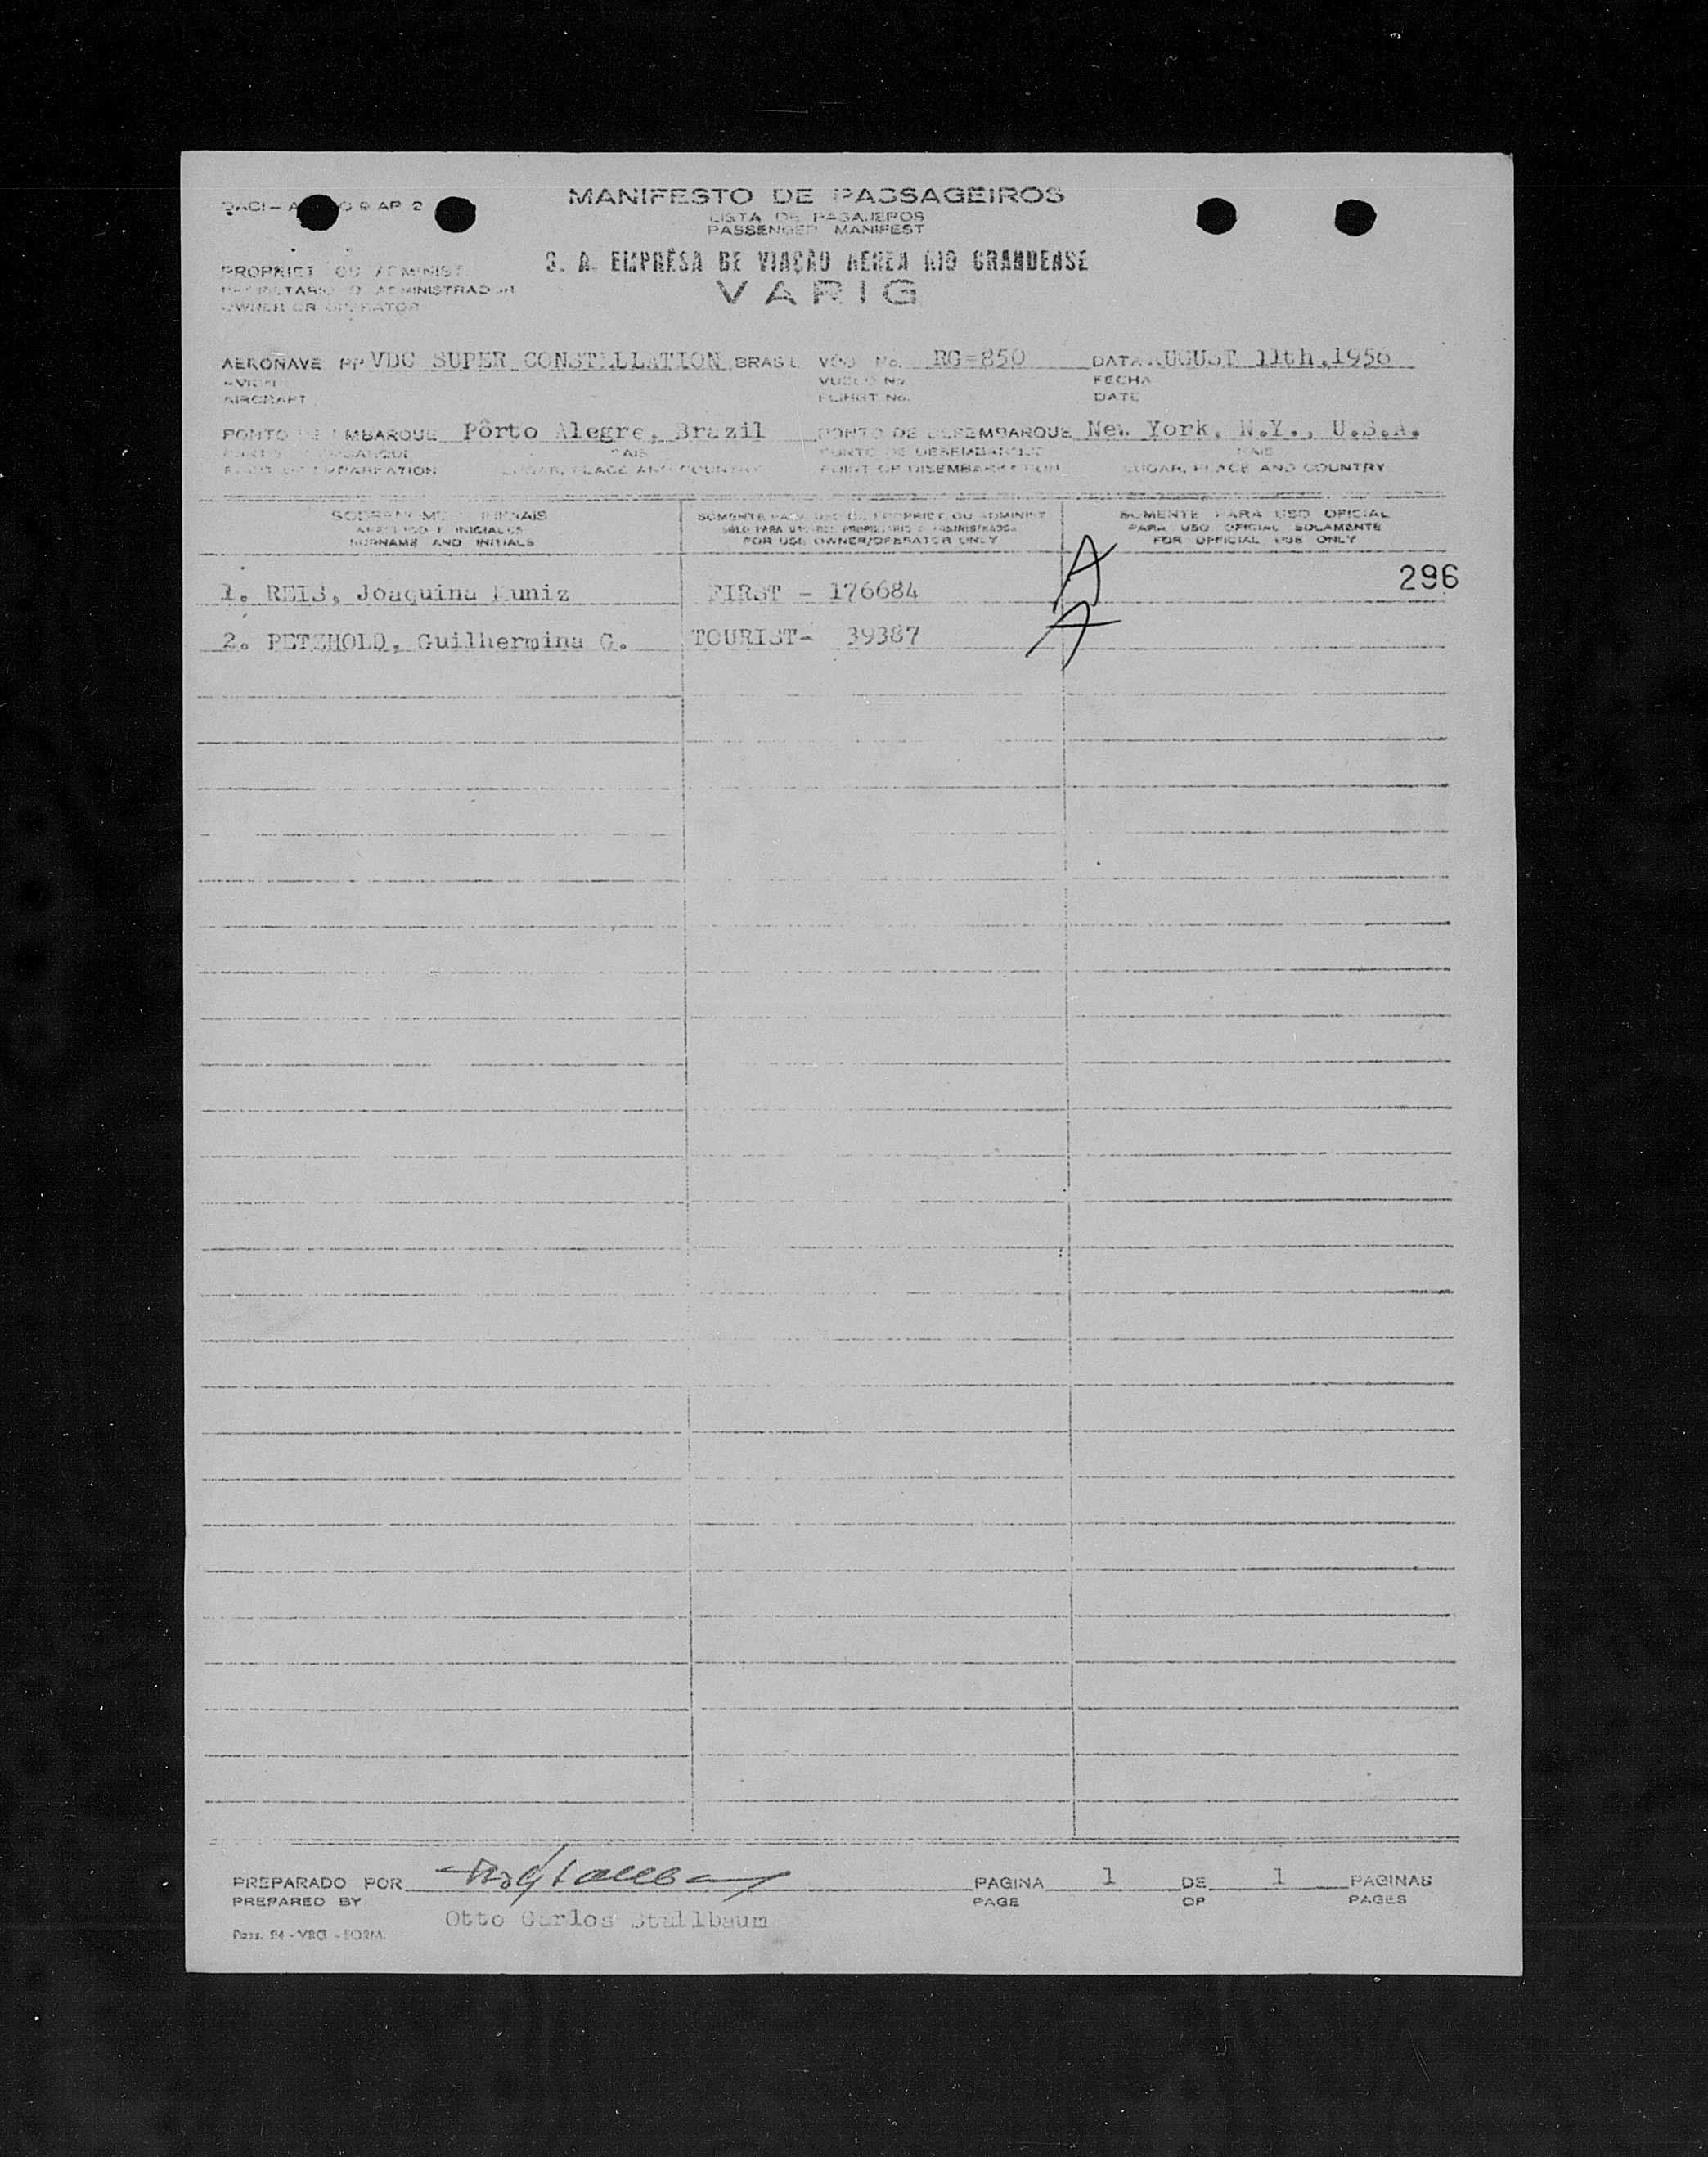 MANIFESTO DE PASSAGEIROS
LISTA DE PASAJEROS
PASSENGER MANIFEST
S. A. EMPRÊSA DE VIAÇÃO AEREA RIO GRANDENSE
VARIG
PROPRIET. OU ADMINIST.
PROPIETARIO O ADMINISTRADOR
OWNER OR OPERATOR
AERONAVE PP VDC SUPER CONSTELLATION BRASIL VÔO No. RG-850 DATA AUGUST 11th,1956
AVION VUELO No. FECHA
AIRCRAFT FLIHGT No. DATE
PONTO DE EMBARQUE Pôrto Alegre, Brazil PONTO DE DESEMBARQUE New York, N.Y., U.S.A.
PUNTO DE EMBARQUE PAIS PUNTO DE DESEMBARQUE PAIS
POINT OF EMBARKATION LUGAR, PLACE AND COUNTRY POINT OF DISEMBARKATION LUGAR, PLACE AND COUNTRY
SOBRENOME E INICIAIS SOMENTE PARA USO DO PROPRIET. OU ADMINIST. SOMENTE PARA USO OFICIAL
APELLIDO E INICIALES SOLO PARA USO DEL PROPIETARIO O ADMINISTRADOR PARA USO OFICIAL SOLAMENTE
SURNAME AND INITIALS FOR USE OWNER/OPERATOR ONLY FOR OFFICIAL USE ONLY
1. REIS, Joaquina Muniz FIRST - 176684 A 296
2. PETZHOLD, Guilhermina G. TOURIST- 39387 A
PREPARADO POR PAGINA 1 DE 1 PAGINAS
PREPARED BY PAGE OF PAGES
Otto Carlos Stallbaum
Pass. 24 - VRG - FORM.